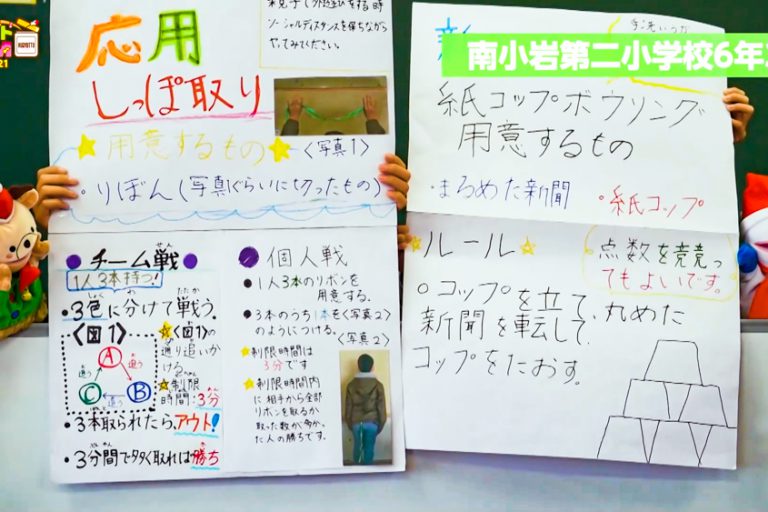 南小岩第二小学校6年
21
応用
しっぽ取り
ソーシャルディスタンスを保ちながら
やってみてください。
用意するもの
〈写真1〉
・りぼん(写真ぐらいに切ったもの)
チーム戦
せん
1人3本持つ!
・3色に分けて戦う。
〈図1〉
A
B
C
追う
追う
追う
〈図1〉の
通り追いか
ける。
制限
時間:3分
・3本取られたら、アウト!
・3分間で多く取れれば勝ち
個人戦
1人3本のリボンを
用意する。
3本のうち1本を〈写真2〉
のようにつける。
〈写真2〉
制限時間は
3分です
制限時間内
に相手から全部
リボンを取るか
取った数が多かっ
た人の勝ちです。
紙コップボウリング
用意するもの
・まるめた新聞
・紙コップ
ルール
点数を競っ
てもよいです。
コップを立て、丸めた
新聞を転して、
コップをたおす。